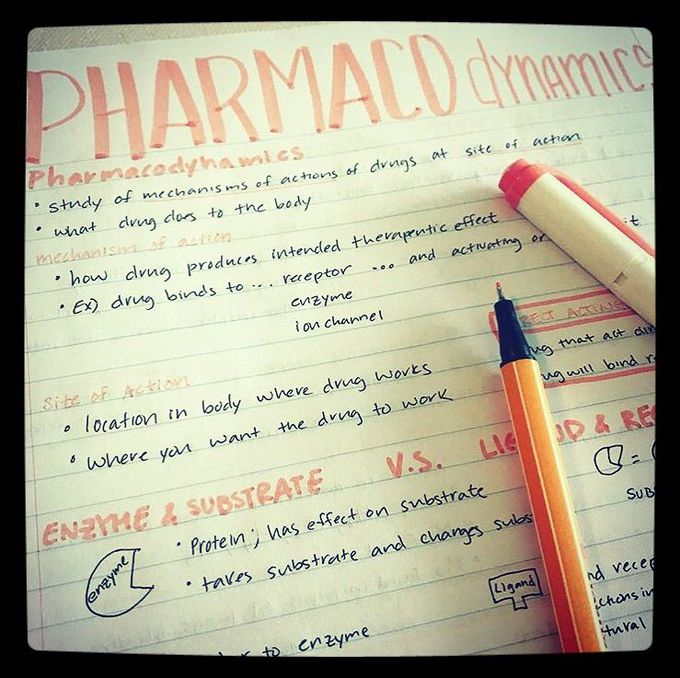 PHARMACO dynamics
Pharmacodynamics
• study of mechanisms of actions of drugs at site of action
• what drug does to the body
mechanism of action
• how drug produces intended therapeutic effect
• Ex) drug binds to ... receptor ... and activating or it
enzyme
ion channel
RECT ACTING
drug that act dir
drug will bind r
Site of Action
• location in body where drug works
• where you want the drug to work
ENZYME & SUBSTRATE V.S. LIGAND & REC
enzyme
• Protein; has effect on substrate
• takes substrate and changes subs
=
SUB
Ligand
nd recep
ctions in
tural
to enzyme